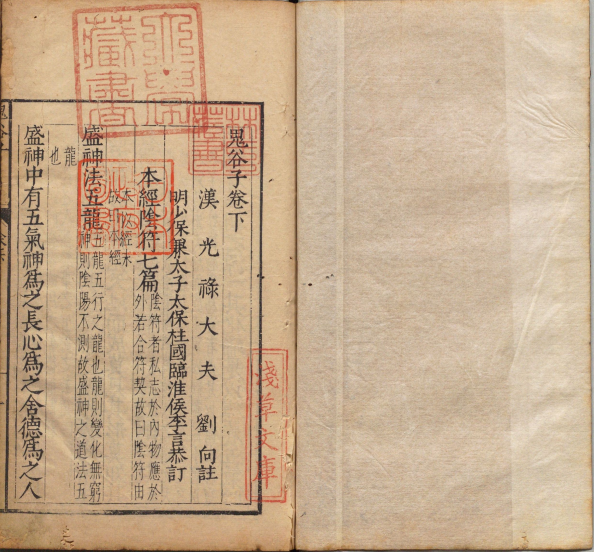 鬼谷子卷下
漢光祿大夫劉向註
明少保兼太子太保柱國臨淮侯李言恭訂
本經陰符七篇
陰符者私志於內物應於
外若合符契故曰陰符由
本以經末
故曰本經
盛神法五龍
五龍五行之龍也龍則變化無窮
神則陰陽不測故盛神之道法五
龍
也
盛神中有五氣神爲之長心爲之舍德爲之人
淺草文庫
藏書
鬼谷子